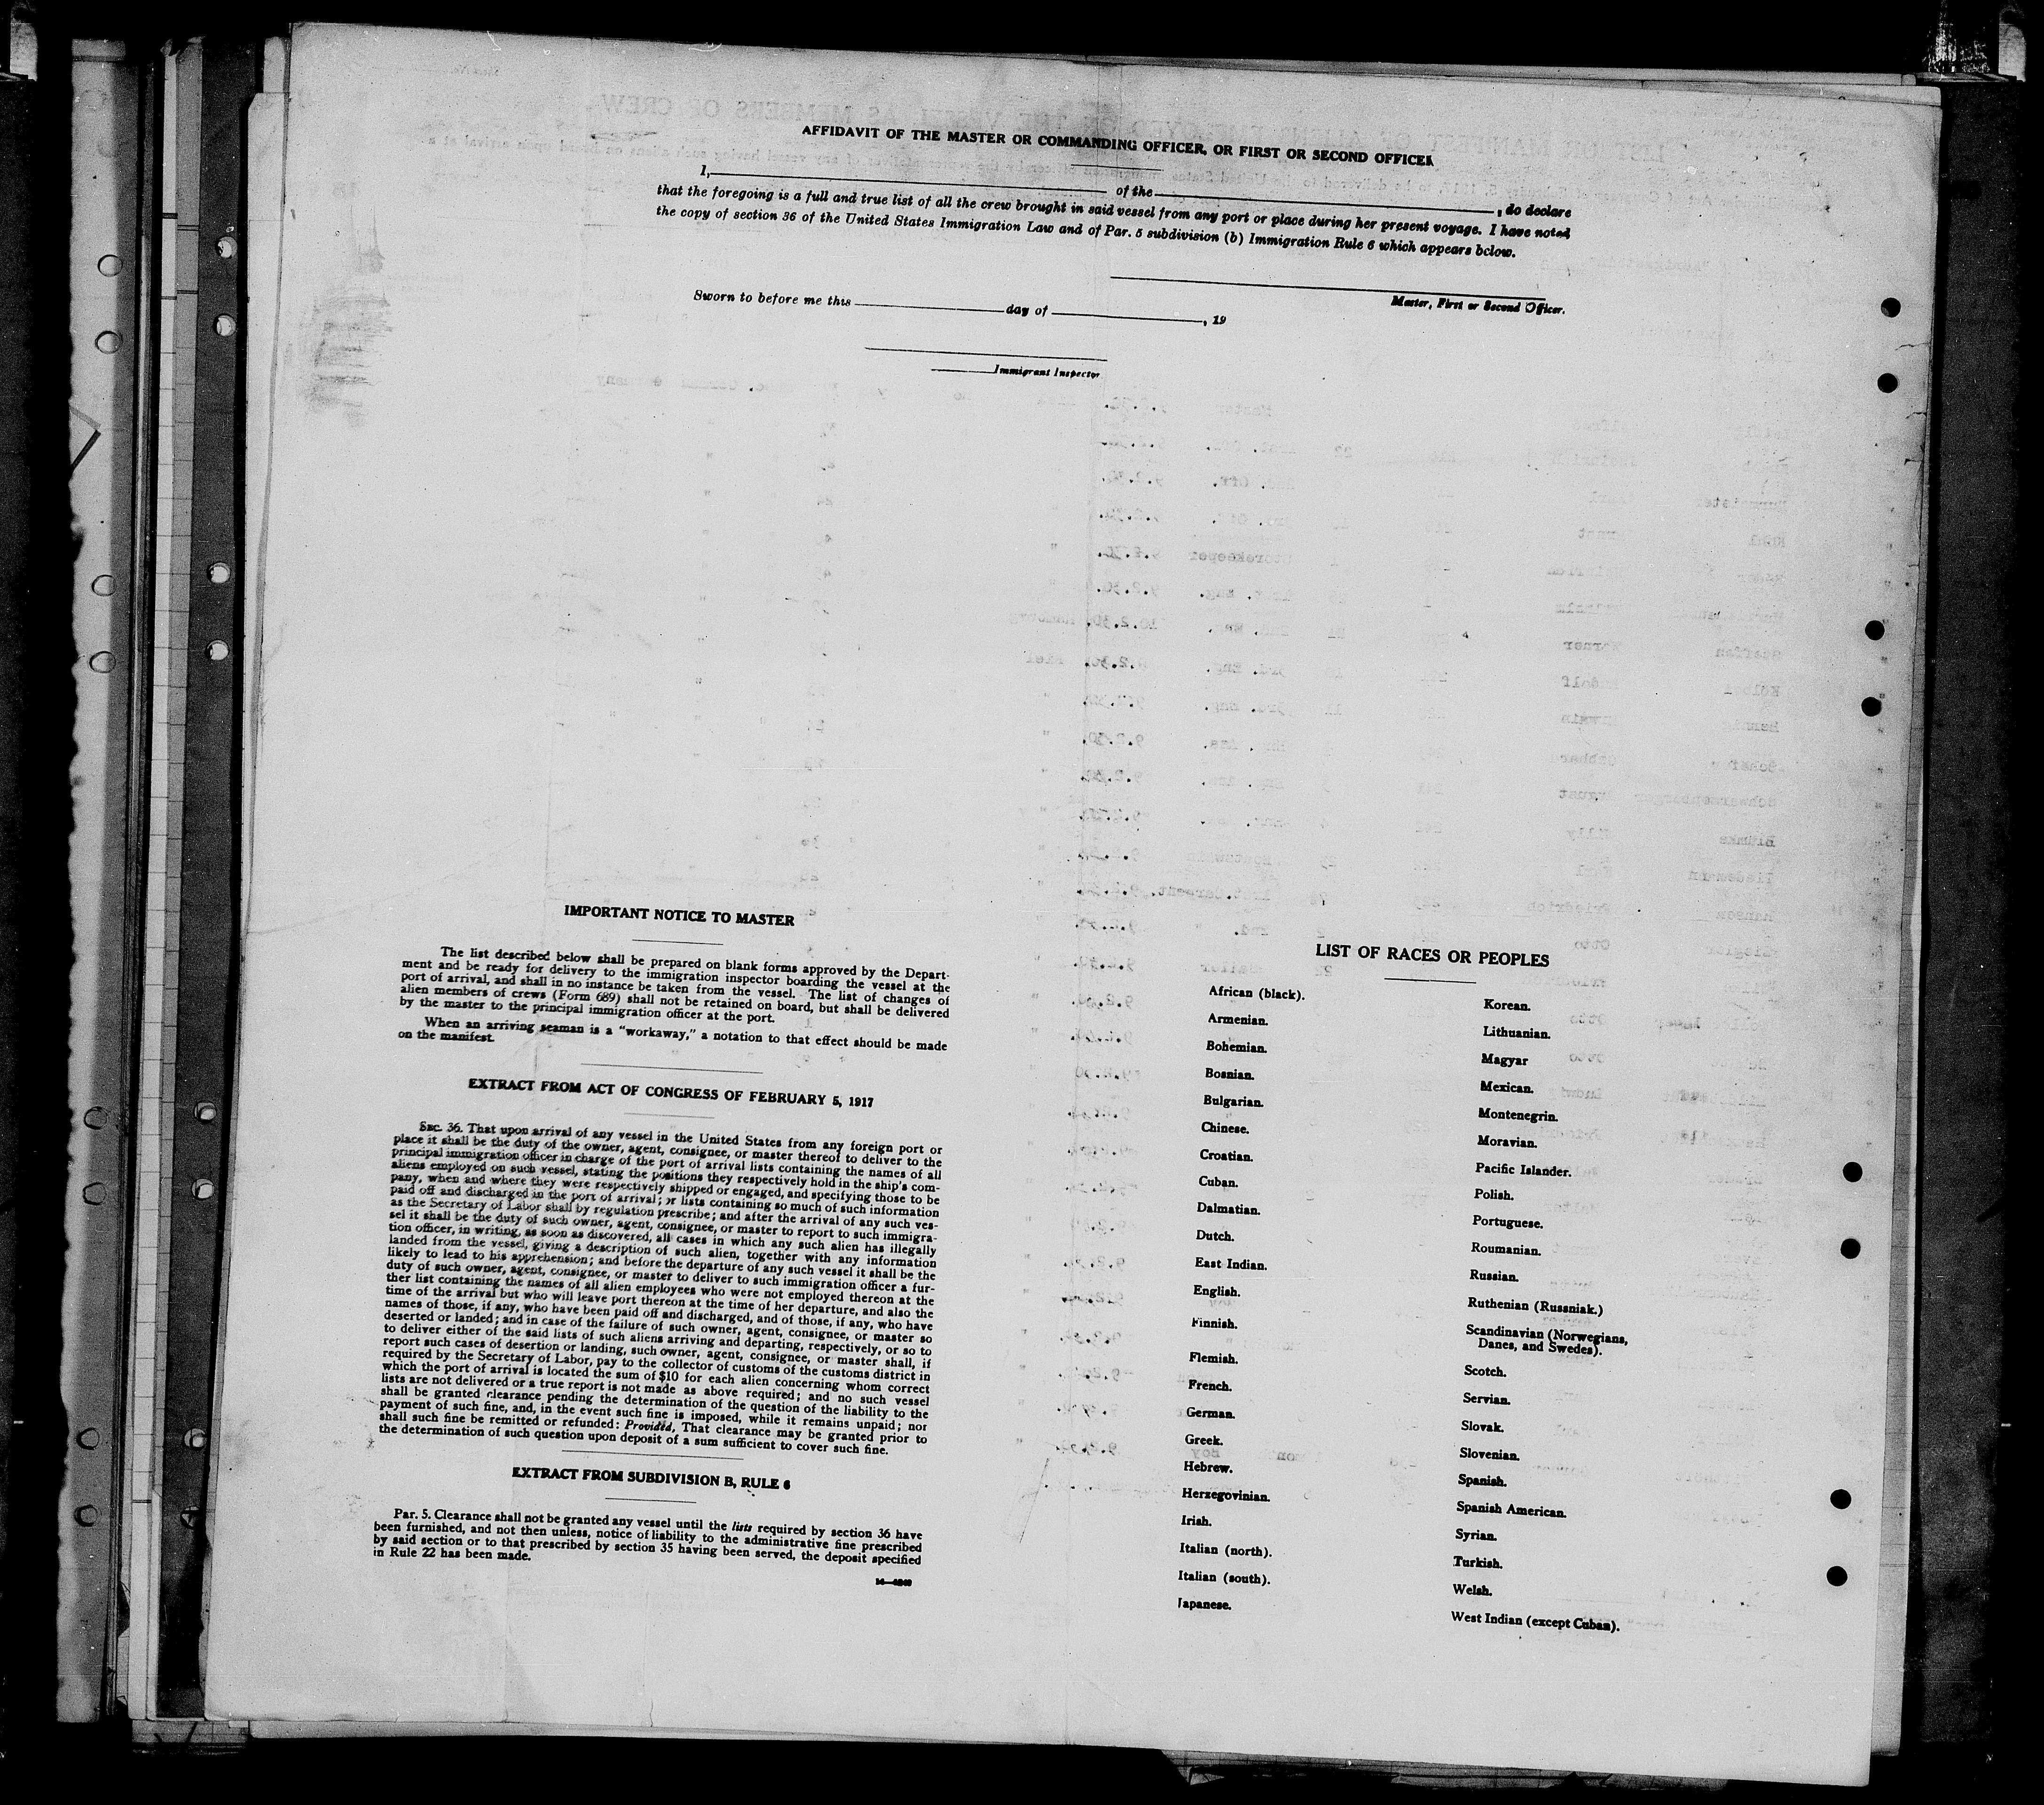 AFFIDAVIT OF THE MASTER OR COMMANDING OFFICER, OR FIRST OR SECOND OFFICER
I, of the , do declare
that the foregoing is a full and true list of all the crew brought in said vessel from any port or place during her present voyage. I have noted
the copy of section 36 of the United States Immigration Law and of Par. 5 subdivision (b) Immigration Rule 6 which appears below.
Master, First or Second Officer.
Sworn to before me this day of , 19
Immigrant Inspector
IMPORTANT NOTICE TO MASTER
The list described below shall be prepared on blank forms approved by the Depart-
ment and be ready for delivery to the immigration inspector boarding the vessel at the
port of arrival, and shall in no instance be taken from the vessel. The list of changes of
alien members of crews (Form 689) shall not be retained on board, but shall be delivered
by the master to the principal immigration officer at the port.
When an arriving seaman is a "workaway," a notation to that effect should be made
on the manifest.
EXTRACT FROM ACT OF CONGRESS OF FEBRUARY 5, 1917
Sec. 36. That upon arrival of any vessel in the United States from any foreign port or
place it shall be the duty of the owner, agent, consignee, or master thereof to deliver to the
principal immigration officer in charge of the port of arrival lists containing the names of all
aliens employed on such vessel, stating the positions they respectively hold in the ship's com-
pany, when and where they were respectively shipped or engaged, and specifying those to be
paid off and discharged in the port of arrival; or lists containing so much of such information
as the Secretary of Labor shall by regulation prescribe; and after the arrival of any such ves-
sel it shall be the duty of such owner, agent, consignee, or master to report to such immigra-
tion officer, in writing, as soon as discovered, all cases in which any such alien has illegally
landed from the vessel, giving a description of such alien, together with any information
likely to lead to his apprehension; and before the departure of any such vessel it shall be the
duty of such owner, agent, consignee, or master to deliver to such immigration officer a fur-
ther list containing the names of all alien employees who were not employed thereon at the
time of the arrival but who will leave port thereon at the time of her departure, and also the
names of those, if any, who have been paid off and discharged, and of those, if any, who have
deserted or landed; and in case of the failure of such owner, agent, consignee, or master so
to deliver either of the said lists of such aliens arriving and departing, respectively, or so to
report such cases of desertion or landing, such owner, agent, consignee, or master shall, if
required by the Secretary of Labor, pay to the collector of customs of the customs district in
which the port of arrival is located the sum of $10 for each alien concerning whom correct
lists are not delivered or a true report is not made as above required; and no such vessel
shall be granted clearance pending the determination of the question of the liability to the
payment of such fine, and, in the event such fine is imposed, while it remains unpaid; nor
shall such fine be remitted or refunded: Provided, That clearance may be granted prior to
the determination of such question upon deposit of a sum sufficient to cover such fine.
EXTRACT FROM SUBDIVISION B, RULE 6
Par. 5. Clearance shall not be granted any vessel until the lists required by section 36 have
been furnished, and not then unless, notice of liability to the administrative fine prescribed
by said section or to that prescribed by section 35 having been served, the deposit specified
in Rule 22 has been made.
LIST OF RACES OR PEOPLES
African (black).
Armenian.
Bohemian.
Bosnian.
Bulgarian.
Chinese.
Croatian.
Cuban.
Dalmatian.
Dutch.
East Indian.
English.
Finnish.
Flemish.
French.
German.
Greek.
Hebrew.
Herzegovinian.
Irish.
Italian (north).
Italian (south).
Japanese.
Korean.
Lithuanian.
Magyar
Mexican.
Montenegrin.
Moravian.
Pacific Islander.
Polish.
Portuguese.
Roumanian.
Russian.
Ruthenian (Russniak.)
Scandinavian (Norwegians,
Danes, and Swedes).
Scotch.
Servian.
Slovak.
Slovenian.
Spanish.
Spanish American.
Syrian.
Turkish.
Welsh.
West Indian (except Cuban).